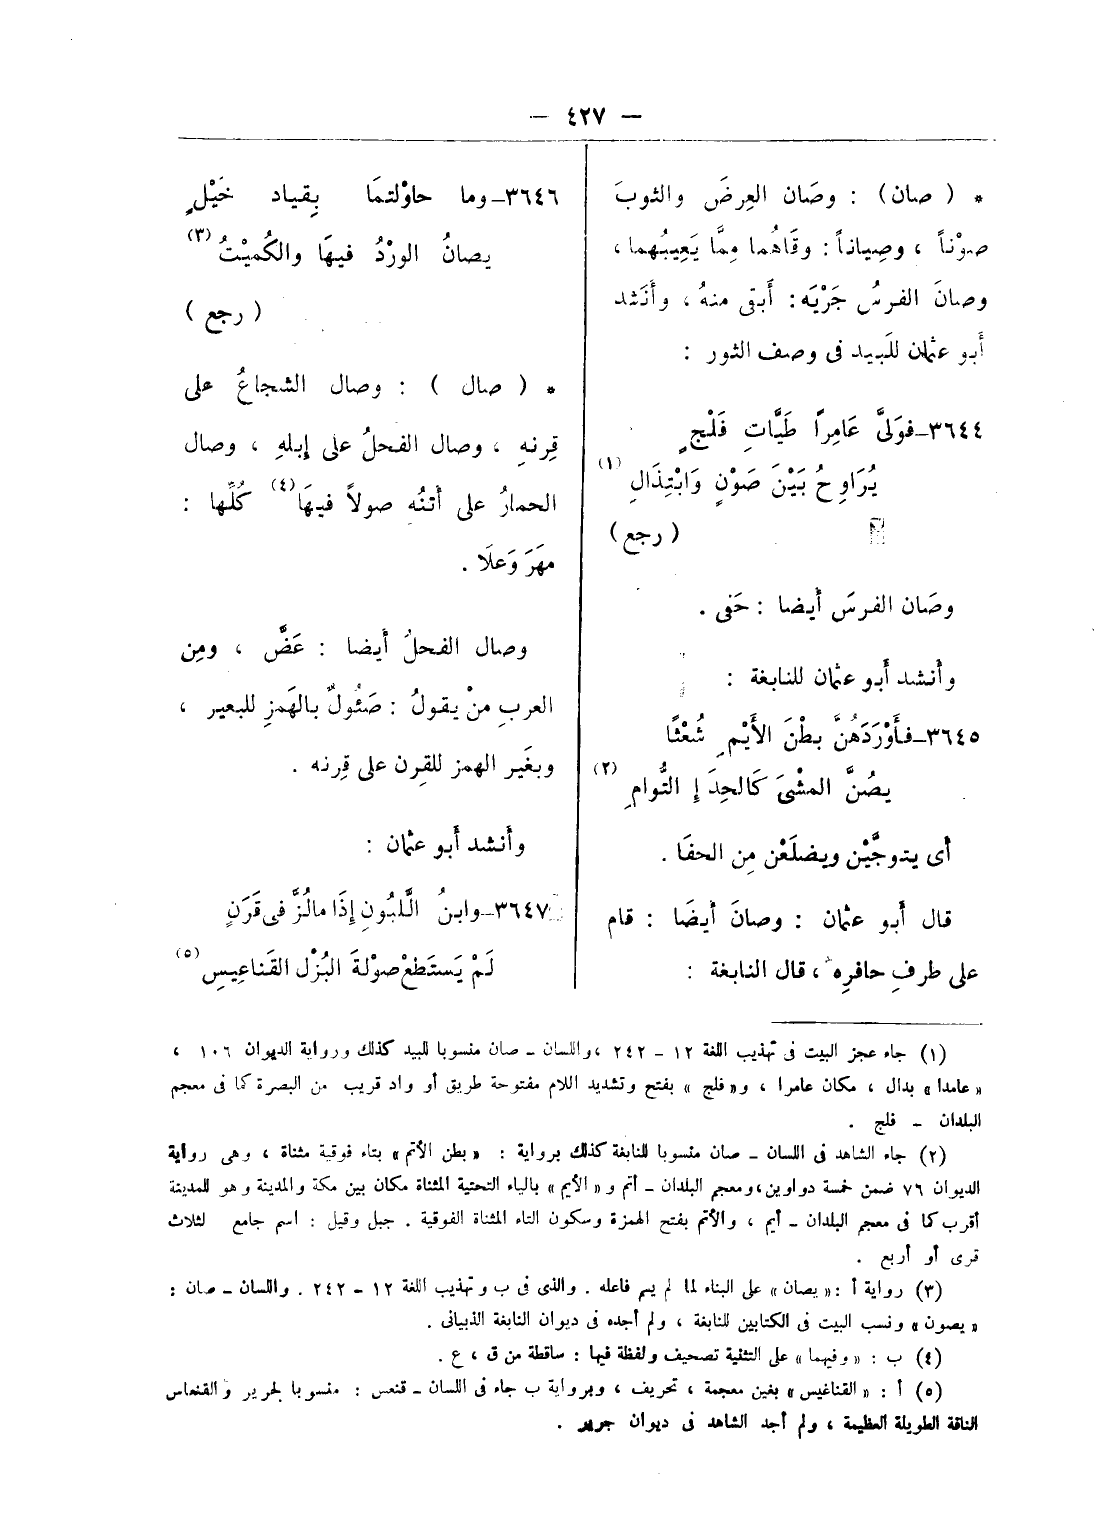 — ٤٢٧ —
* ( صان ) : وصَان العِرضَ والثوبَ
صوْناً ، وصِياناً : وقَاهُما مِمَّا يَعِيبُهما ،
وصانَ الفرسُ جَرْيَه : أَبقى منهُ ، وأَنَشد
أَبو عثمان للَبيد فى وصف الثور :
٣٦٤٤ــ فوَلىَّ عَامِراً طَيَّاتِ فَلْجٍ
يُرَاوِحُ بَيْنَ صَوْنٍ وَابْتِذَالِ (١)
( رجع )
وصَان الفرسَ أَيضا : حَفى .
وأَنشد أَبو عثمان للنابغة :
٣٦٤٥ــ فأَوْرَدَهُنَّ بطْنَ الأَيْمِ شُعْثًا
يصُنَّ المشْىَ كَالحِدَإِ التُّوامِ (٢)
أَى يتوجَّيْن ويضلَعْن مِن الحفَا .
قال أَبو عثمان : وصانَ أَيضَا : قام
على طرفِ حافرِه ، قال النابغة :
٣٦٤٦ــ وما حاوْلتمَا بِقياد خَيْلٍ
يصانُ الورْدُ فيهَا والكُميْتُ (٣)
( رجع )
* ( صال ) : وصال الشجاعُ على
قِرنهِ ، وصال الفحلُ على إبلهِ ، وصال
الحمارُ على أُتنُه صولاً فيهَا (٤) كُلَّها :
مهَرَ وَعلَا .
وصال الفحلُ أَيضا : عَضَّ ، ومِن
العربِ منْ يقولُ : صَئُولٌ بالهَمزِ للبعير ،
وبغَير الهمز للقِرن على قِرنه .
وأَنشد أَبو عثمان :
٣٦٤٧ــ وابنُ الَّلبُونِ إذَا مالُزَّ فى قَرَنٍ
لَمْ يَستَطعْ صوْلةَ البُزْل القَناعِيسِ (٥)
(١) جاء عجز البيت فى تهذيب اللغة ١٢ – ٢٤٢ ، واللسان – صان منسوبا للبيد كذلك ورواية الديوان ١٠٦ ،
« عامدا » بدال ، مكان عامرا ، و« فلج » بفتح وتشديد اللام مفتوحة طريق أو واد قريب من البصرة كما فى معجم
البلدان – فلج .
(٢) جاء الشاهد فى اللسان – صان منسوبا للنابغة كذلك برواية : « بطن الأتم » بتاء فوقية مثناة ، وهى رواية
الديوان ٧٦ ضمن خمسة دواوين ، ومعجم البلدان – أتم و« الأيم » بالياء التحتية المثناة مكان بين مكة والمدينة وهو للمدينة
أقرب كما فى معجم البلدان – أيم ، والأتم بفتح الهمزة وسكون التاء المثناة الفوقية . جبل وقيل : اسم جامع لثلاث
قرى أو أربع .
(٣) رواية أ : « يصان » على البناء لما لم يسم فاعله . والذى فى ب وتهذيب اللغة ١٢ – ٢٤٢ . واللسان – صان :
« يصون » ونسب البيت فى الكتابين للنابغة ، ولم أجده فى ديوان النابغة الذبيانى .
(٤) ب : « وفيهما » على التثنية تصحيف ولفظة فيها : ساقطة من ق ، ع .
(٥) أ : « القناغيس » بغين معجمة ، تحريف ، وبرواية ب جاء فى اللسان – قنعس : منسوبا لجرير والقنعاس
الناقة الطويلة العظيمة ، ولم أجد الشاهد فى ديوان جرير .